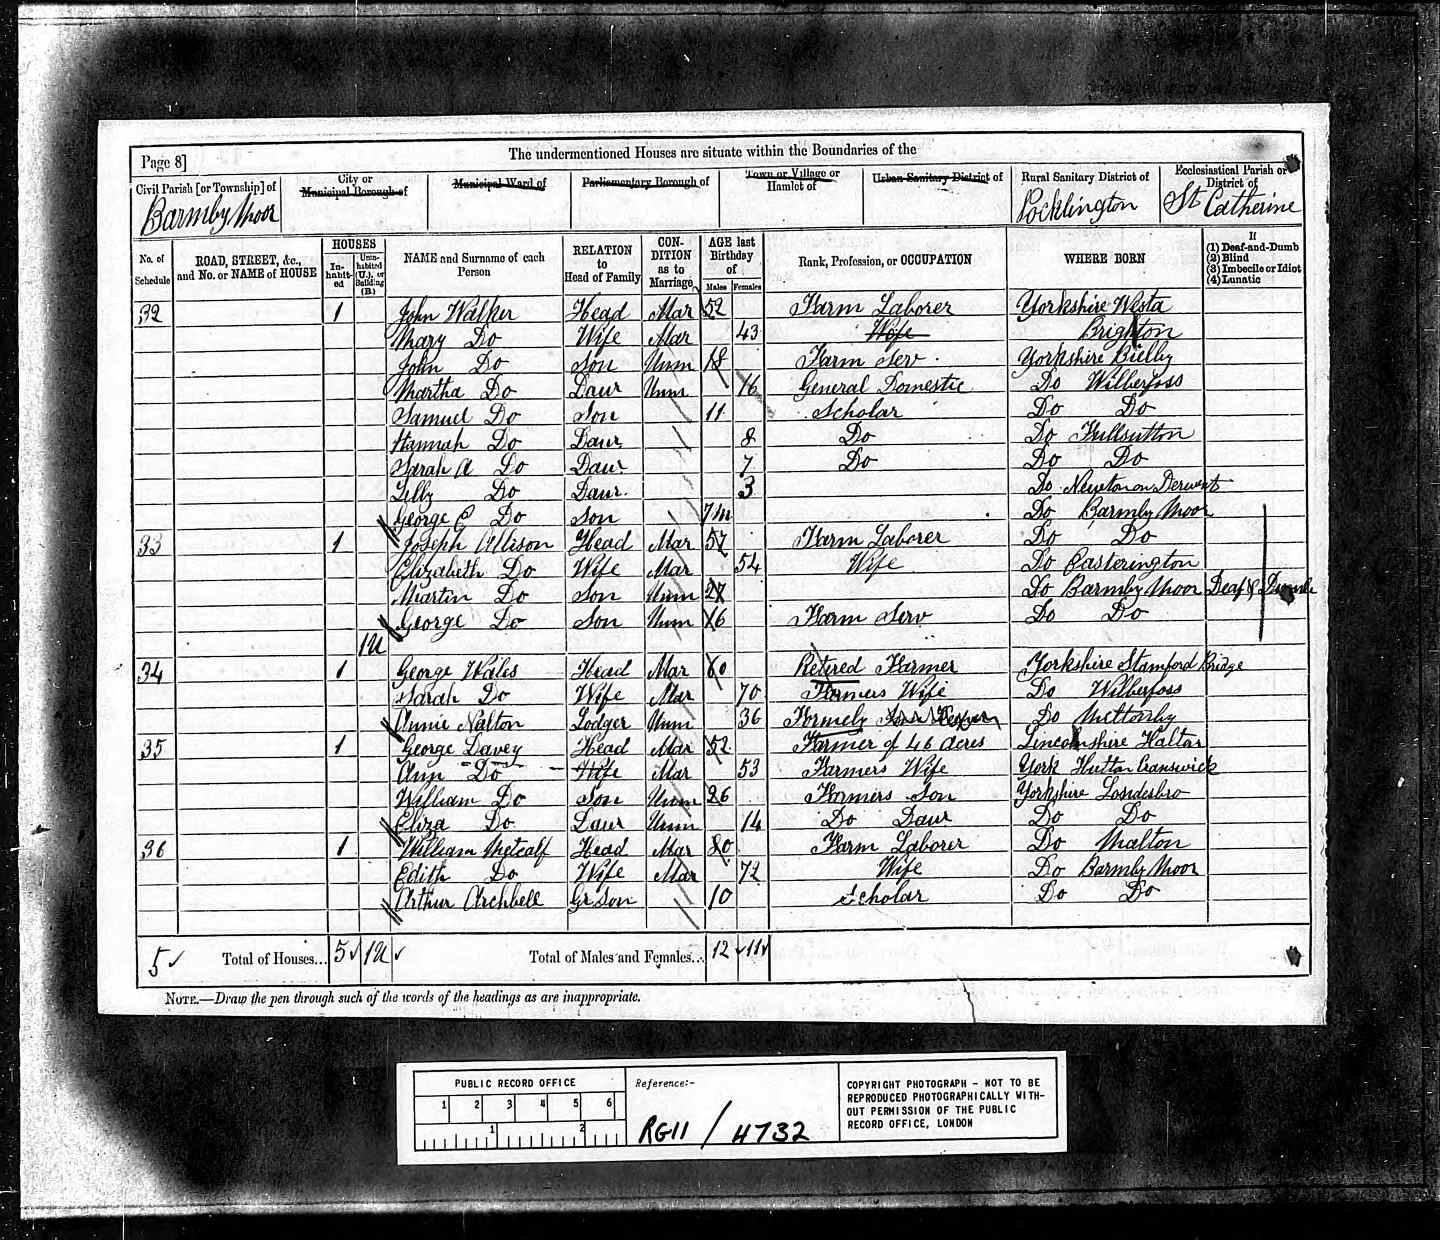 Page 8]
The undermentioned Houses are situate within the Boundaries of the
Civil Parish [or Township] of City or Municipal Borough of Municipal Ward of Parliamentary Borough of Town or Village or Hamlet of Urban Sanitary District of Rural Sanitary District of Ecclesiastical Parish or District of
Barmby Moor Pocklington St Catherine
No. of Schedule ROAD, STREET, &c., and No. or NAME of HOUSE HOUSES Inhabited Uninhabited (U.), or Building (B.) NAME and Surname of each Person RELATION to Head of Family CONDITION as to Marriage AGE last Birthday of Males Females Rank, Profession, or OCCUPATION WHERE BORN If (1) Deaf-and-Dumb (2) Blind (3) Imbecile or Idiot (4) Lunatic
32 1 John Walker Head Mar 52 Farm Laborer Yorkshire
Mary Do Wife Mar 43 Wife Brighton
John Do Son Unm 18 Farm Serv Yorkshire Bielby
Martha Do Daur Unm 16 General Domestic Do Wilberfoss
Samuel Do Son 11 Scholar Do Do
Hannah Do Daur 8 Do Do Fullsutton
Sarah A Do Daur 7 Do Do Do
Lilly Do Daur 3 Do Newton on Derwent
George E Do Son 7m Do Barmby Moor
33 1 Joseph Allison Head Mar 57 Farm Laborer Do Do
Elizabeth Do Wife Mar 54 Wife Do Easterington
Martin Do Son Unm 27 Do Barmby Moor Deaf &
George Do Son Unm 16 Farm Serv Do Do
1U
34 1 George Wales Head Mar Retired Farmer Yorkshire Stamford Bridge
Sarah Do Wife Mar 70 Farmers Wife Do Wilberfoss
Annie Nalton Lodger Unm 36 Formely Do
35 1 George Davey Head Mar 52 Farmer of 46 Acres Lincolnshire
Ann Do Wife Mar 53 Farmers Wife York Hutton Cranswick
William Do Son Unm 26 Farmers Son Yorkshire Londesbro
Eliza Do Daur Unm 14 Do Daur Do Do
36 1 William Metcalf Head Mar 80 Farm Laborer Do Malton
Edith Do Wife Mar 72 Wife Do Barmby Moor
Arthur Archbell Gr Son 10 Scholar Do Do
5 Total of Houses... 5 1U Total of Males and Females... 12 11
NOTE.—Draw the pen through such of the words of the headings as are inappropriate.
PUBLIC RECORD OFFICE
1 2 3 4 5 6
1 2
Reference:-
RG11 / 4732
COPYRIGHT PHOTOGRAPH - NOT TO BE
REPRODUCED PHOTOGRAPHICALLY WITH-
OUT PERMISSION OF THE PUBLIC
RECORD OFFICE, LONDON